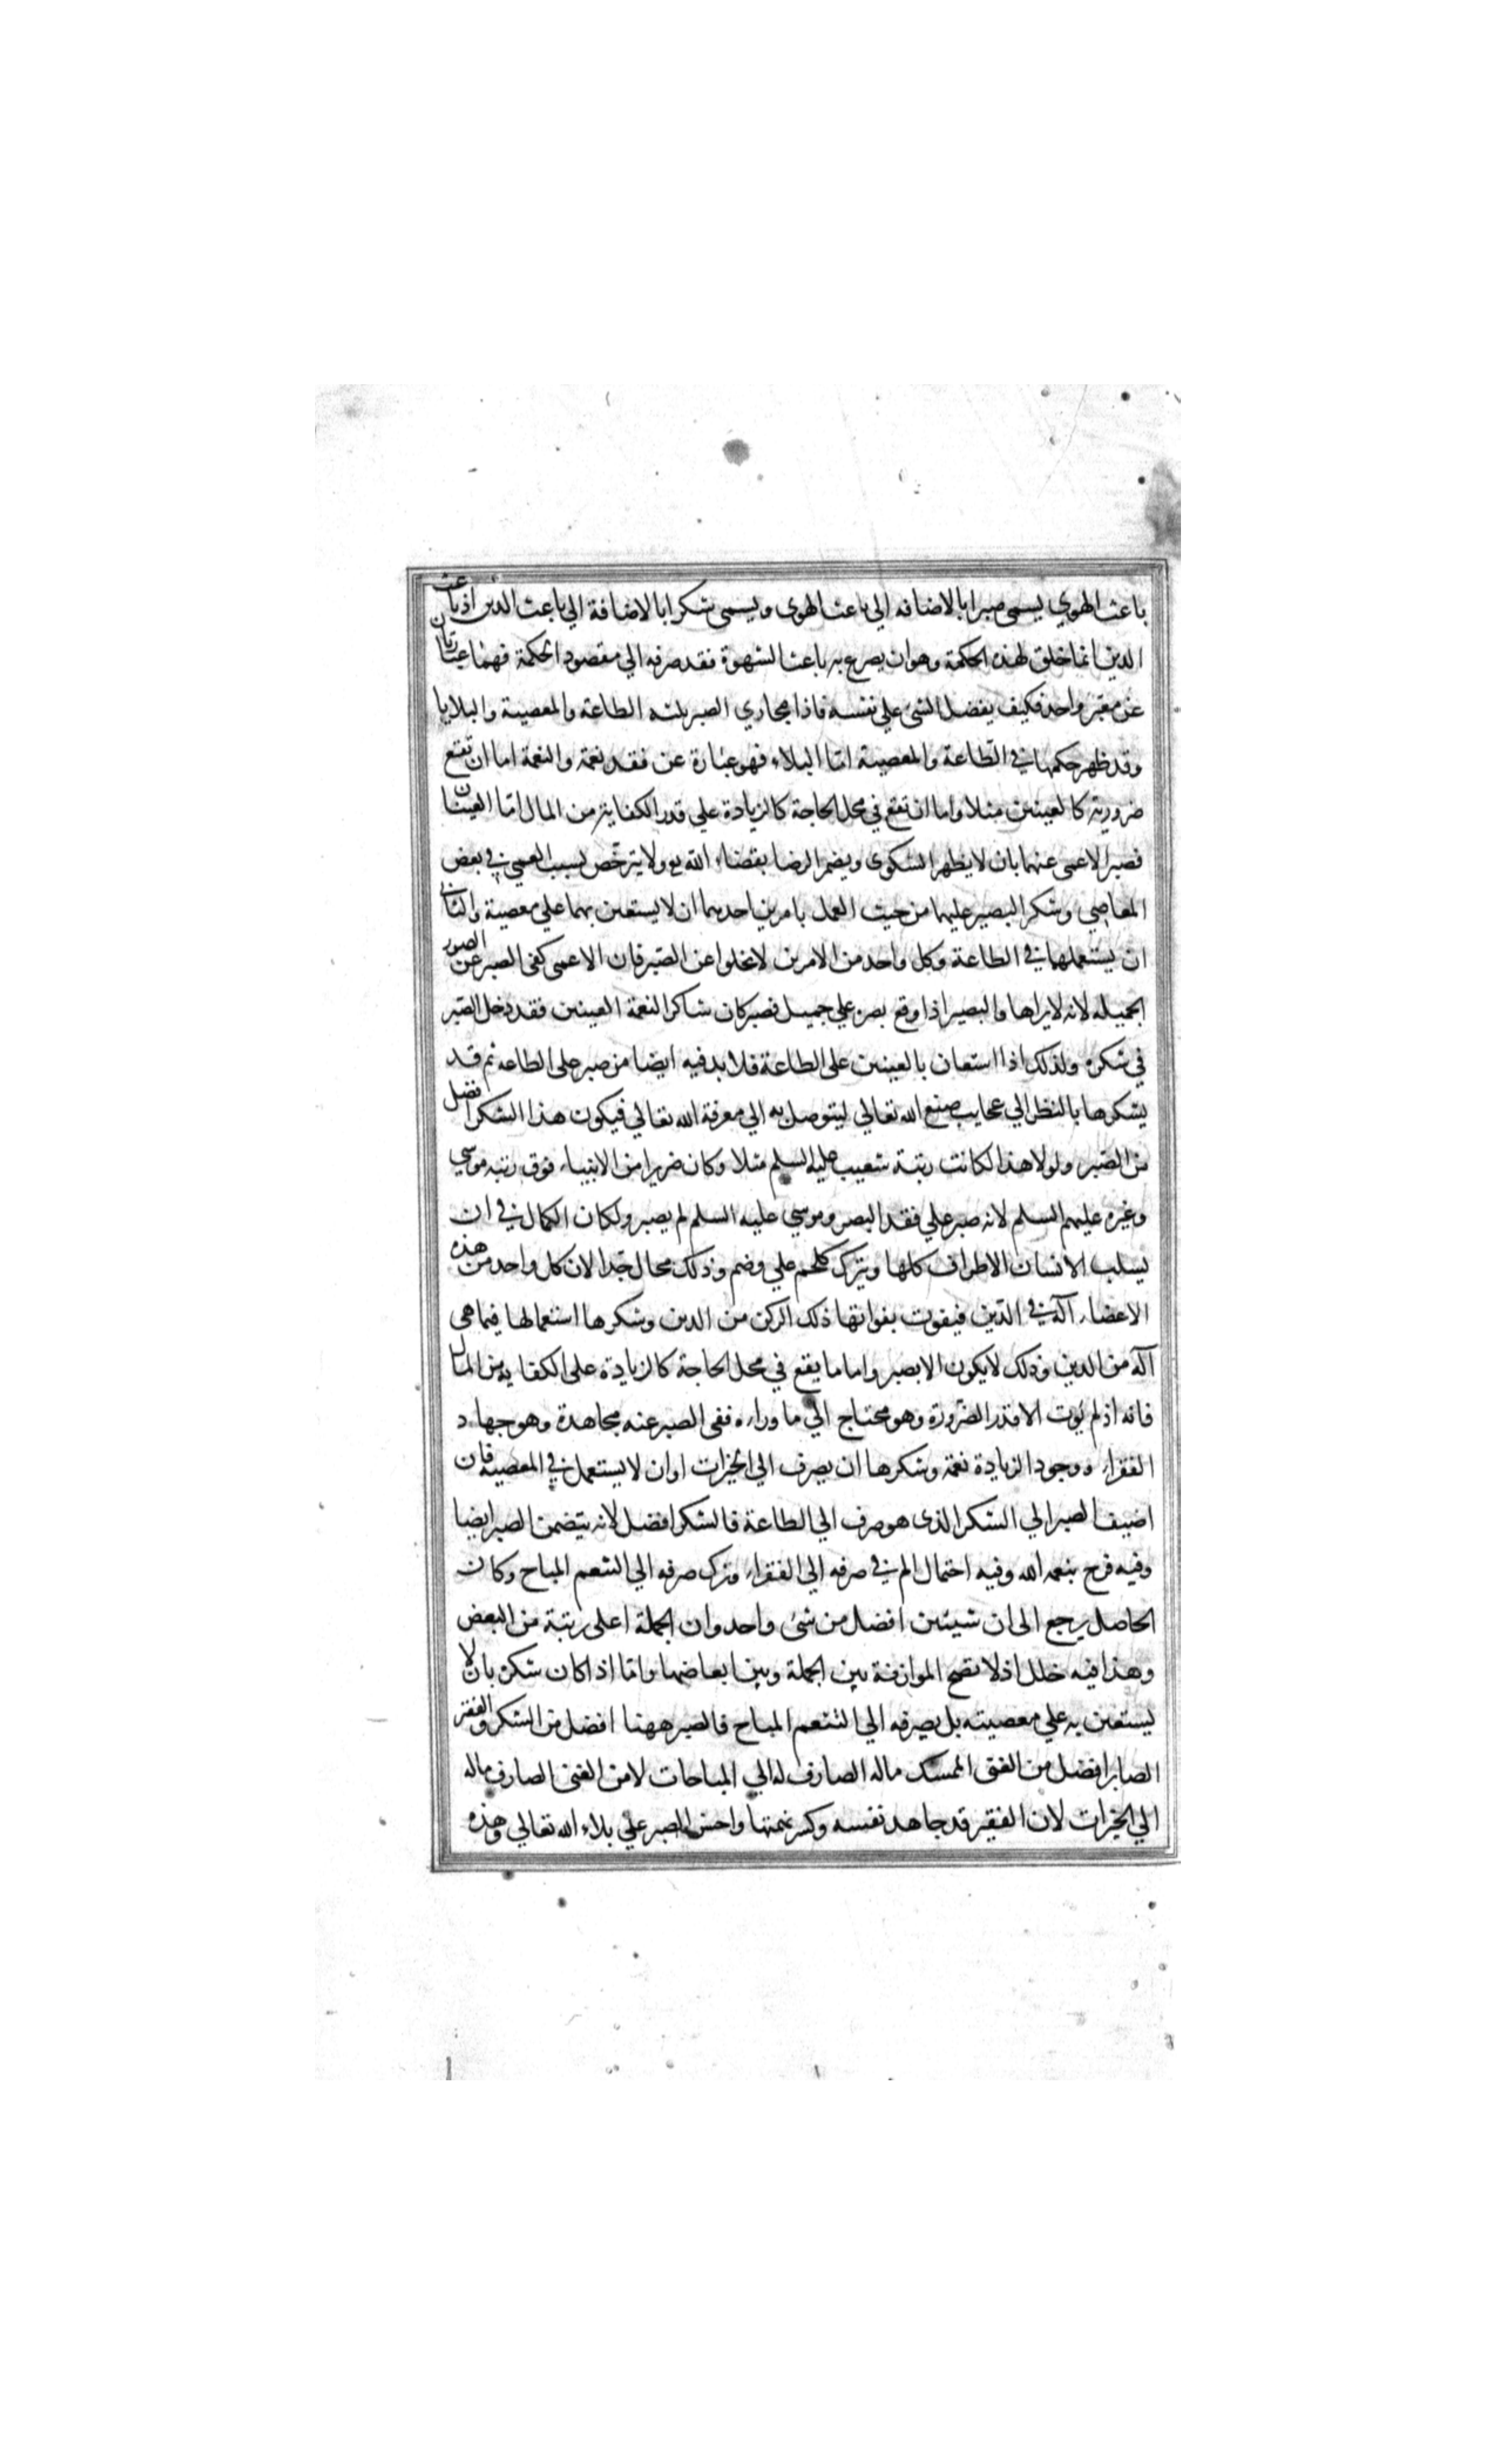 باعث الهوي يسمى صبرا بالاضافه الي باعث الهوى ويسمى شكرا بالاضافة الي باعث الدين اذ باعث
الدين انما خلق لهذه الحكمة وهو ان يصرع به باعث الشهوة فقد صرفه الي مقصود الحكمة فهما عبارتان
عن معبر واحد فكيف يفضل الشئ علي نفسه فاذا مجاري الصبر ثلثه الطاعة والمعصية والبلايا
وقد ظهر حكمها في الطاعة والمعصية امّا البلاء فهو عبارة عن فقد نعمة والنعمة اما ان تقع
ضرورية كالعينين مثلا واما ان تقع في محل الحاجة كالزيادة علي قدر الكفاية من المال امّا العينان
فصبر الاعمى عنهما بان لا يظهر الشكوى ويضمر الرضا بقضاء الله تع ولا يترخّص لسبب العمى في بعض
المعاصي وشكر البصير عليهما من حيث العمل بامرين احديهما ان لا يستعين بهما علي معصية والثاني
ان يستعملهما في الطاعة وكل واحد من الامرين لا يخلوا عن الصّبر فان الاعمى كفى الصبر عن الصور
الجميله لانه لا يراها والبصير اذا وقع بصره علي جميل فصبر كان شاكرا لنعمة العينين فقد دخل الصّبر
في شكره ولذلك اذا استعان بالعينين على الطاعة فلا بد فيه ايضا من صبر على الطاعه ثم قد
يشكرها بالنظر الي عجايب صنع الله تعالي ليتوصل به الي معرفة الله تعالي فيكون هذا الشكر افضل
من الصّبر ولولا هذا لكانت رتبة شعيب عليه السلم مثلا وكان ضريرا من الانبياء فوق رتبه موسي
وغيره عليهم السلم لانه صبر علي فقد البصر وموسي عليه السلم لم يصبر ولكان الكمال في ان
يسلب الانسان الاطراف كلها ويترك كلحم علي وضم وذلك محال جدّا لان كل واحد من هذه
الاعضاء آلة في الدّين فيفوت بفواتها ذلك الركن من الدين وشكرها استعمالها فيما هي
آلة من الدين وذلك لا يكون الا بصبر واما ما يقع في محل الحاجة كالزيادة على الكفاية من المال
فانه اذ لم يؤت الا قدر الضّرورة وهو محتاج الي ما وراءه ففى الصبر عنه مجاهدة وهو جهاد
الفقراء ووجود الزيادة نعمة وشكرها ان يصرف الي الخيرات او ان لا يستعمل في المعصيه فان
اضيف الصبر الي الشكر الذى هو صرف الي الطاعة فالشكر افضل لانه يتضمن الصبر ايضا
وفيه فرح بنعمه الله وفيه احتمال الم في صرفه الي الفقراء وترك صرفه الي التنعم المباح وكان
الحاصل يرجع الى ان شيئين افضل من شئ واحد وان الجملة اعلى رتبة من البعض
وهذا فيه خلل اذ لا تصح الموازنة بين الجملة وبين ابعاضها وامّا اذا كان شكره بان لا
يستعين به علي معصيته بل يصرفه الي التنعم المباح فالصبر ههنا افضل من الشكر والفقير
الصابر افضل من الغني الممسك ماله الصارف له الي المباحات لا من الغني الصارف ماله
الي الخيرات لان الفقير قد جاهد نفسه وكسر نهمتها واحسن الصبر علي بلاء الله تعالي وهذه